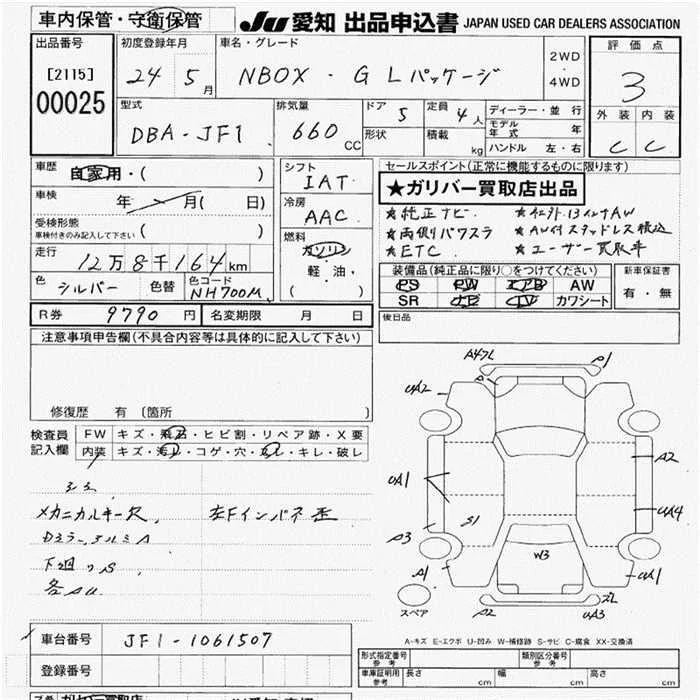 車内保管・守衛保管
JU 愛知 出品申込書 JAPAN USED CAR DEALERS ASSOCIATION
出品番号 初度登録年月 車名・グレード 評価点
[2115] 24 5月 NBOX・G Lパッケージ 2WD・4WD 3
00025
型式 排気量 ドア 5 定員 4人 ディーラー・並行 外装 内装
DBA-JF1 660cc 形状 積載 kg モデル年式 年 C C
ハンドル 左・右
車歴 自家用・( ) シフト セールスポイント(正常に機能するものに限ります)
IAT ★ガリバー買取店出品
車検 年 月( 日) 冷房
AAC ★純正ナビ ★社外13インチAW
受検形態 ( ) ★両側パワスラ ★AW付スタッドレス積込
車検付きのみ記入して下さい 燃料 ★ETC ★ユーザー買取車
走行 12万8千164km ガソリン 装備品(純正品に限り○をつけてください) 新車保証書
軽油・ PS PW エアB AW 有・無
色 シルバー 色替 色コード NH700M ( ) SR ナビ TV カワシート
R券 9790円 名変期限 月 日 後日品
注意事項申告欄(不具合内容等は具体的に記入して下さい)
修復歴 有 (箇所 )
検査員記入欄 FW キズ・飛石・ヒビ割・リペア跡・X要
内装 キズ・汚レ・コゲ・穴・スレ・キレ・破レ
メカニカルキー欠 左Fインパネ歪
Dミラー、アルミA
下廻りS
各AU
A4フL A1
A
UA2
A2
UA1
S1 UA4
A3
W3
A1 UA1
スペア A2 UA3
A-キズ E-エクボ U-凹み W-補修跡 S-サビ C-腐食 XX-交換済
車台番号 JF1-1061507
登録番号
形式指定番号 参考 類別区分番号 参考
車庫証明用 参考 長さ cm 幅 cm 高さ cm
ガリバー買取店